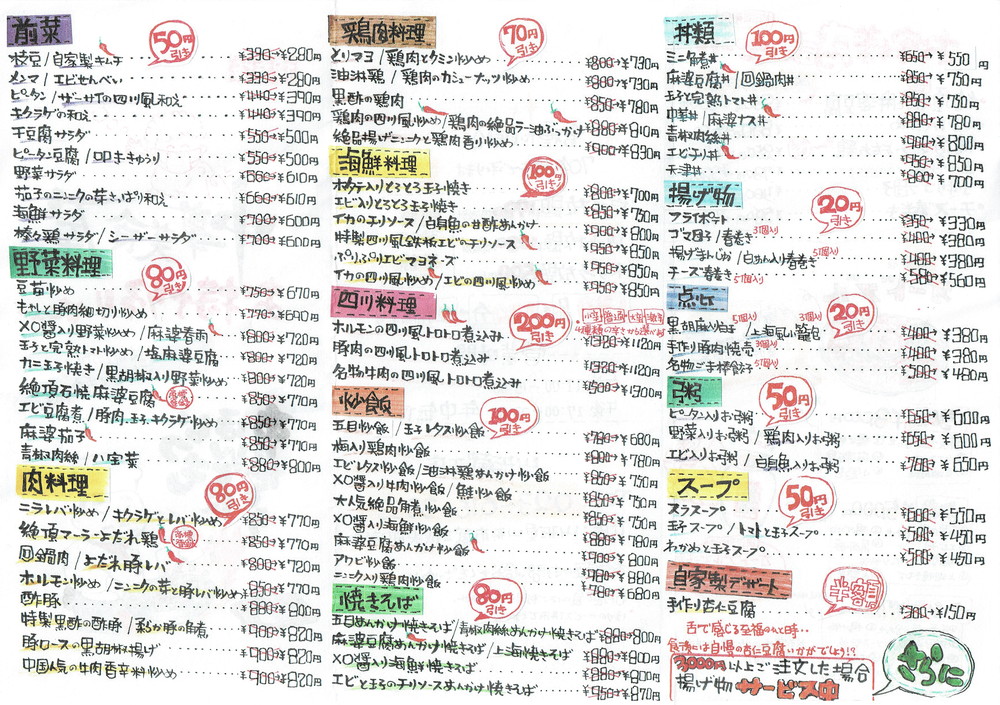 前菜
50円引き
枝豆/自家製キムチ ¥330→¥280円
メンマ/エビせんべい ¥330→¥280円
ピータン/ザーサイの四川風和え ¥440→¥390円
キクラゲの和え ¥440→¥390円
干豆腐サラダ ¥550→¥500円
ピータン豆腐/叩ききゅうり ¥550→¥500円
野菜サラダ ¥660→¥610円
茄子のニンニクの芽さっぱり和え ¥660→¥610円
海鮮サラダ ¥700→¥600円
棒々鶏サラダ/シーザーサラダ ¥700→¥600円
野菜料理
80円引き
豆苗炒め ¥750→¥670円
もやしと豚肉細切り炒め ¥770→¥690円
XO醤入り野菜炒め/麻婆春雨 ¥800→¥720円
玉子と完熟トマト炒め/塩肉麻婆豆腐 ¥800→¥720円
カニ玉子焼き/黒胡椒入り野菜炒め ¥800→¥720円
絶頂石焼麻婆豆腐 ¥850→¥770円
エビ豆腐煮/豚肉、玉子、キクラゲ炒め ¥850→¥770円
麻婆茄子 ¥850→¥770円
青椒肉絲/八宝菜 ¥880→¥800円
肉料理
80円引き
ニラレバ炒め/キクラゲとレバ炒め ¥850→¥770円
絶頂マーラーよだれ鶏 ¥850→¥770円
回鍋肉/よだれ豚レバ ¥800→¥720円
ホルモン炒め/ニンニクの芽と豚レバ炒め ¥850→¥770円
酢豚 ¥880→¥800円
特製黒酢の酢豚/柔らか豚の角煮 ¥900→¥820円
豚ロースの黒胡椒揚げ ¥900→¥820円
中国人気の牛肉香辛料炒め ¥900→¥820円
鶏肉料理
70円引き
とりマヨ/鶏肉とクミン炒め ¥800→¥730円
油淋鶏/鶏肉のカシューナッツ炒め ¥800→¥730円
黒酢の鶏肉 ¥850→¥780円
鶏肉の四川風炒め/鶏肉の絶品ラー油ぶっかけ ¥880→¥810円
絶品揚げニンニクと鶏肉香り炒め ¥900→¥830円
海鮮料理
100円引き
ホタテ入りとろとろ玉子焼き ¥800→¥700円
エビ入りとろとろ玉子焼き ¥850→¥750円
イカのチリソース/白身魚の甘酢あんかけ ¥850→¥750円
特製四川風鉄板エビのチリソース ¥950→¥850円
ぷりぷりエビマヨネーズ ¥950→¥850円
イカの四川風炒め/エビの四川風炒め ¥950→¥850円
四川料理
200円引き
4種類の辛さから選べます
ホルモンの四川風トロトロ煮込み ¥1320→¥1120円
豚肉の四川風トロトロ煮込み ¥1320→¥1120円
名物牛肉の四川風トロトロ煮込み ¥1500→¥1300円
炒飯
100円引き
五目炒飯/玉子レタス炒飯 ¥780→¥680円
梅入り鶏肉炒飯 ¥800→¥700円
エビレタス炒飯/油淋鶏あんかけ炒飯 ¥850→¥750円
XO醤入り牛肉炒飯/鮭炒飯 ¥850→¥750円
大人気絶品角煮炒飯 ¥850→¥750円
XO醤入り海鮮炒飯 ¥850→¥750円
麻婆豆腐あんかけ炒飯 ¥900→¥800円
アワビ炒飯 ¥980→¥880円
ニンニク入り鶏肉炒飯 ¥780→¥680円
焼きそば
80円引き
五目あんかけ焼きそば/青椒肉絲あんかけ焼きそば ¥880→¥800円
麻婆豆腐あんかけ焼きそば/上海焼きそば ¥880→¥800円
XO醤入り海鮮焼きそば ¥880→¥800円
エビと玉子のチリソースあんかけ焼きそば ¥950→¥870円
丼類
100円引き
ミニ角煮丼 ¥650→¥550円
麻婆豆腐丼/回鍋肉丼 ¥850→¥750円
玉子と完熟トマト丼 ¥850→¥750円
中華丼/麻婆ナス丼 ¥880→¥780円
青椒肉絲丼 ¥900→¥800円
エビチリ丼 ¥950→¥850円
天津丼 ¥800→¥700円
揚げ物
20円引き
フライポテト ¥350→¥330円
ゴマ団子/春巻き 3個入り ¥400→¥380円
揚げまんじゅう/白あん入り春巻き 5個入り ¥400→¥380円
チーズ春巻き 5個入り ¥580→¥560円
点心
20円引き
黒胡麻小籠包 5個入り/上海風小籠包 3個入り ¥400→¥380円
手作り豚肉焼売 3個入り ¥400→¥380円
名物ごま棒餃子 5個入り ¥500→¥480円
粥
50円引き
ピータン入りお粥 ¥650→¥600円
野菜入りお粥/鶏肉入りお粥 ¥650→¥600円
エビ入りお粥/白身魚入りお粥 ¥700→¥650円
スープ
50円引き
スラスープ ¥600→¥550円
玉子スープ/トマトと玉子スープ ¥500→¥450円
わかめと玉子スープ ¥500→¥450円
自家製デザート
半額
手作り杏仁豆腐 ¥300→¥150円
舌で感じる至福のひと時・・
食後には自慢の杏仁豆腐いかがでしょう!?
3,000円以上ご注文した場合
揚げ物サービス中
さらに